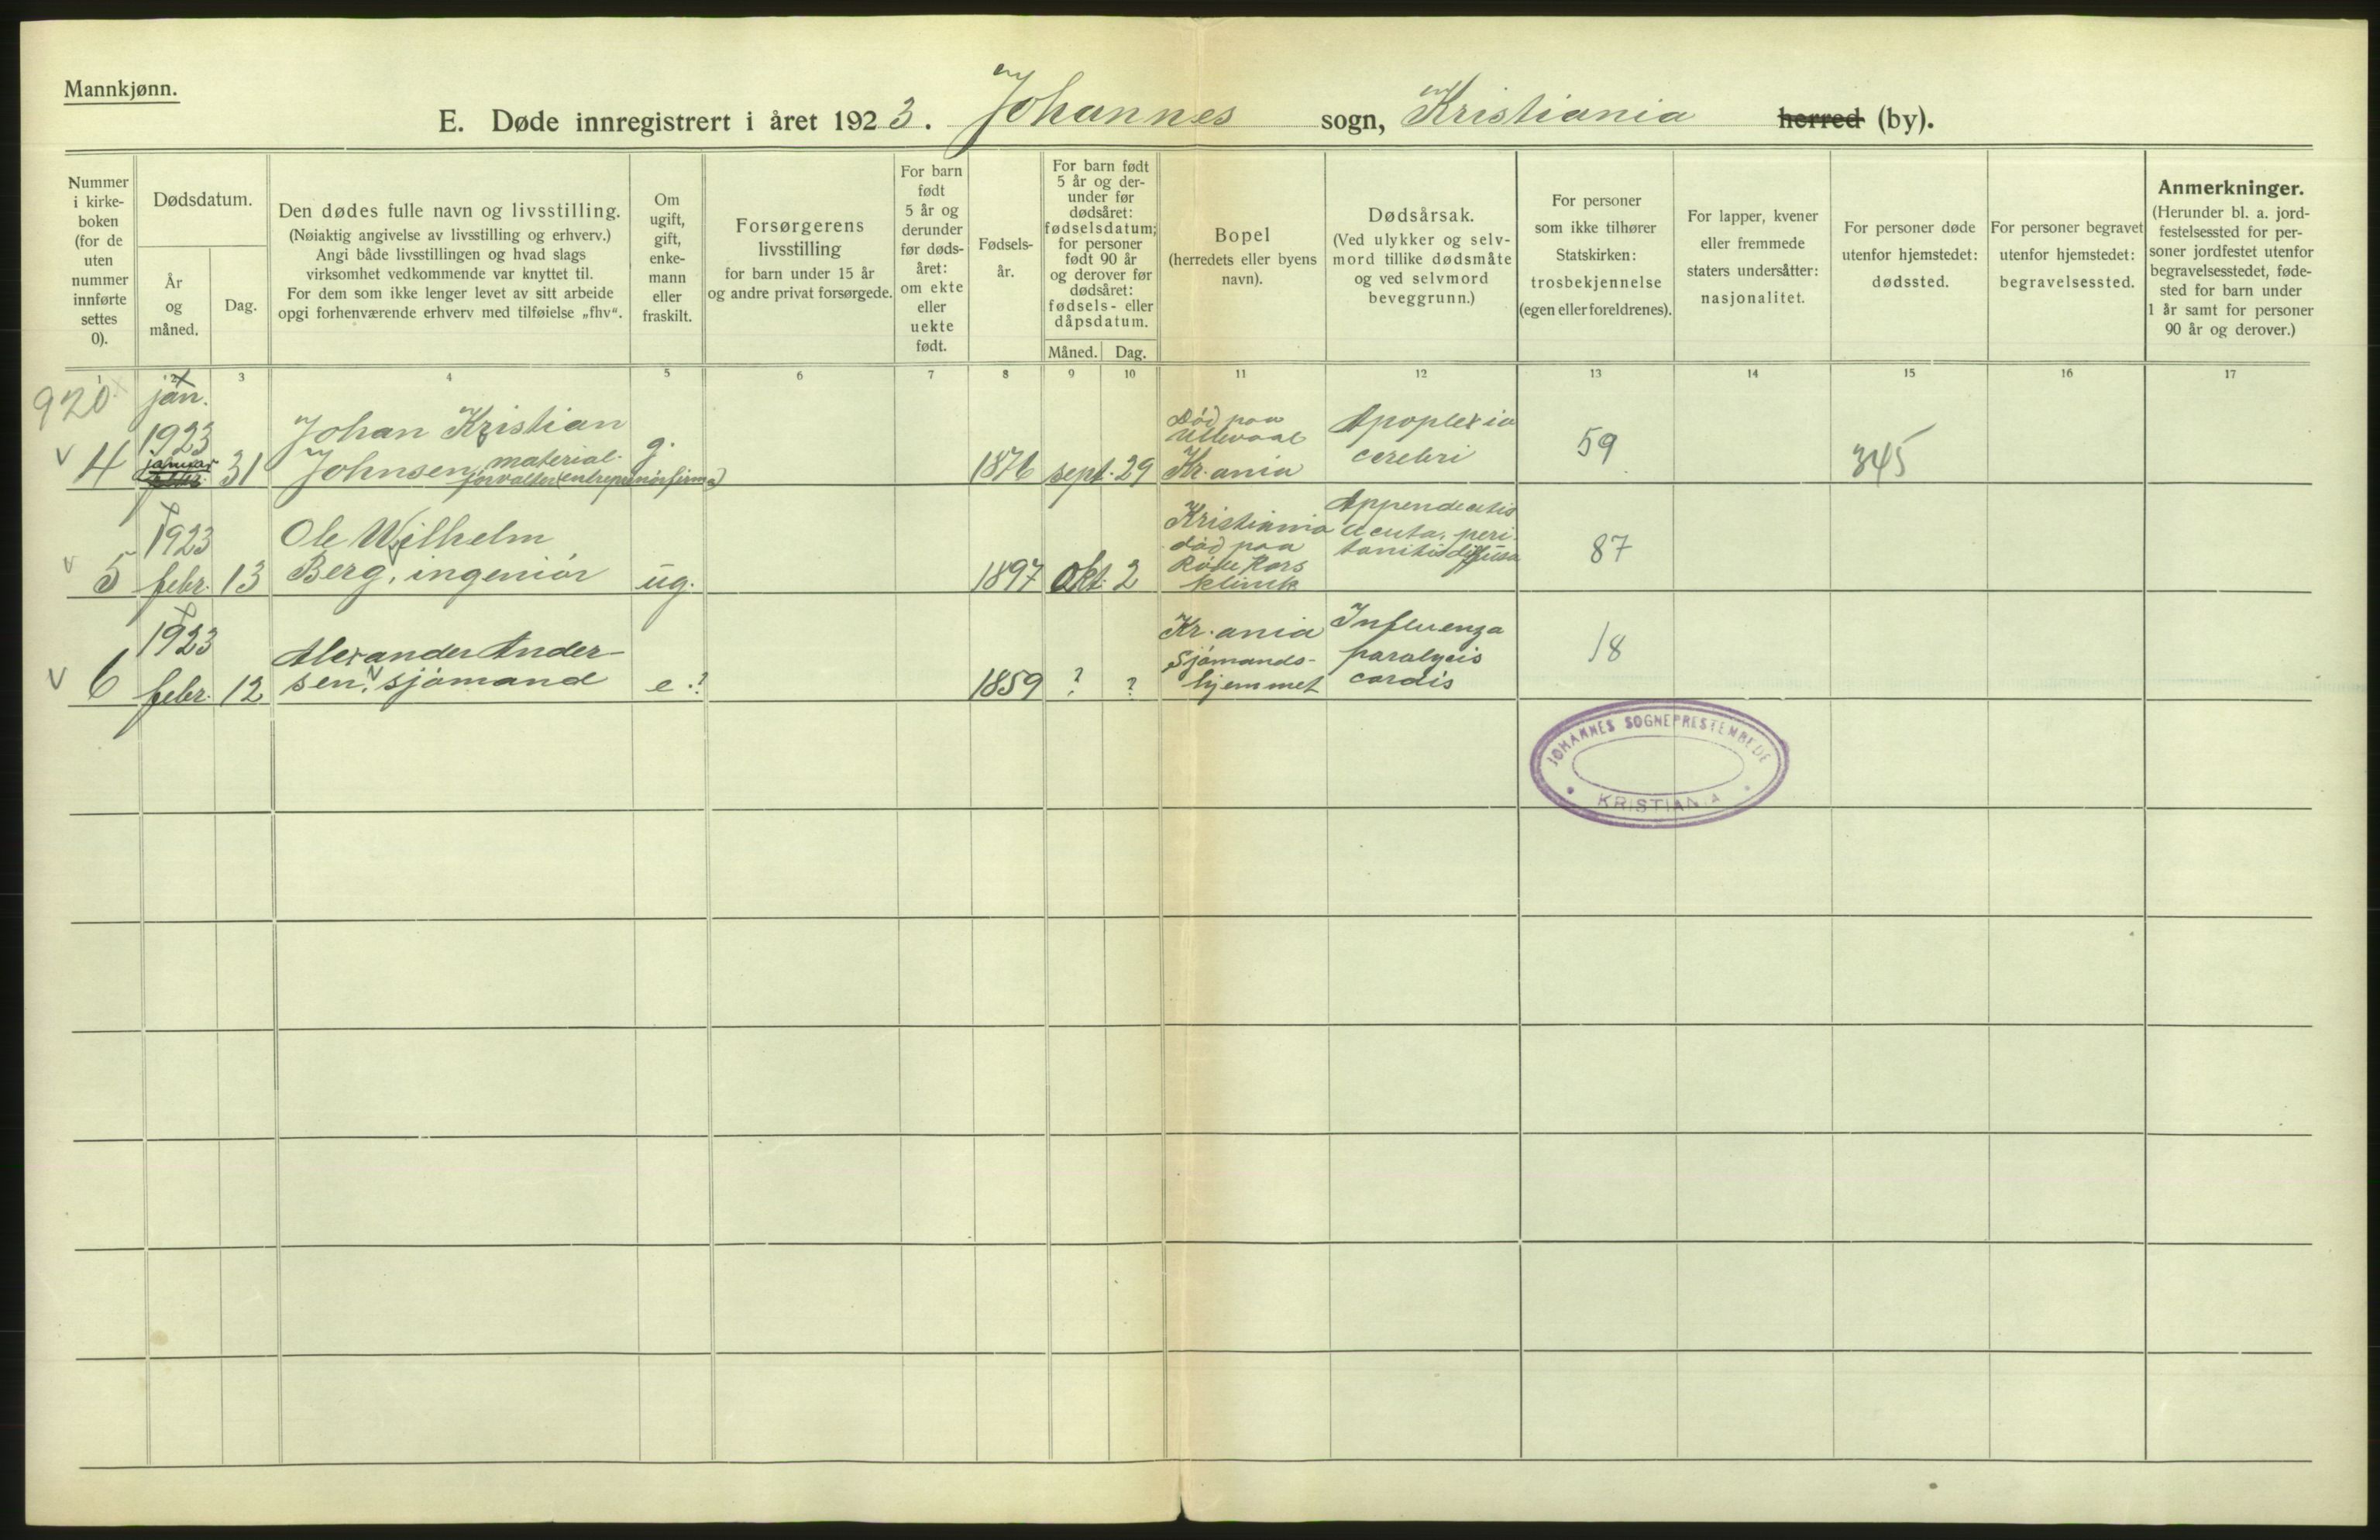 Mannkjønn.
E. Døde innregistrert i året 1923. Johannes sogn, Kristiania herred (by).
Nummer
i kirke-
boken
(for de
uten
nummer
innførte
settes
0).
Dødsdatum.
År
og
måned.
Dag.
Den dødes fulle navn og livsstilling.
(Nøiaktig angivelse av livsstilling og erhverv.)
Angi både livsstillingen og hvad slags
virksomhet vedkommende var knyttet til.
For dem som ikke lenger levet av sitt arbeide
opgi forhenværende erhverv med tilføielse „fhv“.
Om
ugift,
gift,
enke-
mann
eller
fraskilt.
Forsørgerens
livsstilling
for barn under 15 år
og andre privat forsørgede.
For barn
født
5 år og
derunder
før døds-
året:
om ekte
eller
uekte
født.
Fødsels-
år.
For barn født
5 år og der-
under før
dødsåret:
fødselsdatum;
for personer
født 90 år
og derover før
dødsåret:
fødsels- eller
dåpsdatum.
Måned. Dag.
Bopel
(herredets eller byens
navn).
Dødsårsak.
(Ved ulykker og selv-
mord tillike dødsmåte
og ved selvmord
beveggrunn.)
For personer
som ikke tilhører
Statskirken:
trosbekjennelse
(egen eller foreldrenes).
For lapper, kvener
eller fremmede
staters undersåtter:
nasjonalitet.
For personer døde
utenfor hjemstedet:
dødssted.
For personer begravet
utenfor hjemstedet:
begravelsessted.
Anmerkninger.
(Herunder bl. a. jord-
festelsessted for per-
soner jordfestet utenfor
begravelsesstedet, føde-
sted for barn under
1 år samt for personer
90 år og derover.)
1 2 3 4 5 6 7 8 9 10 11 12 13 14 15 16 17
920
jan.
v 4
1923
januar
31
Johan Kristian
Johnsen, material-
forvalter (entreprenørfirma)
g.
1876 sept. 29
Død paa
Ullevaal
Kr.ania
Apoplexia
cerebri
59
345
v 5
1923
febr. 13
Ole Wilhelm
Berg, ingeniör
ug.
1897 Okt. 2
Kristiania
död paa
Röde Kors
klinik
Appendicitis
acuta, peri-
tonitis diffusa
87
v 6
1923
febr. 12
Alexander Ander-
sen, sjömand
e.?
1859 ? ?
Kr.ania
Sjömands-
hjemmet
Influenza
paralysis
cordis
18
JOHANNES SOGNEPRESTEMBEDE
KRISTIANIA